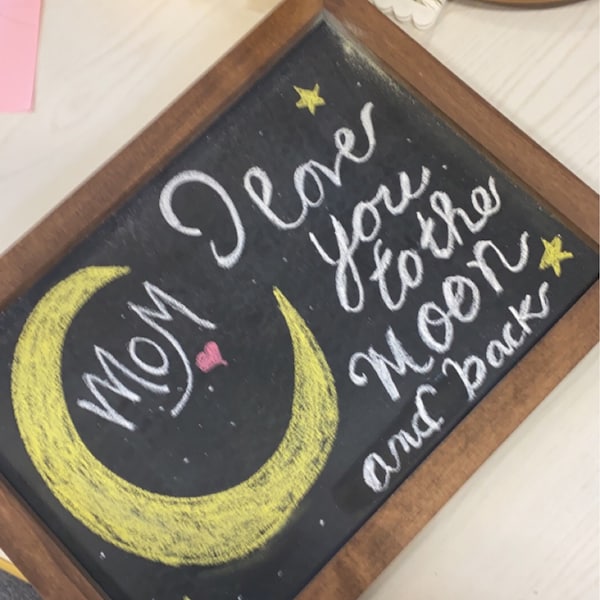 I love
you
to the
Moon
and back
MOM